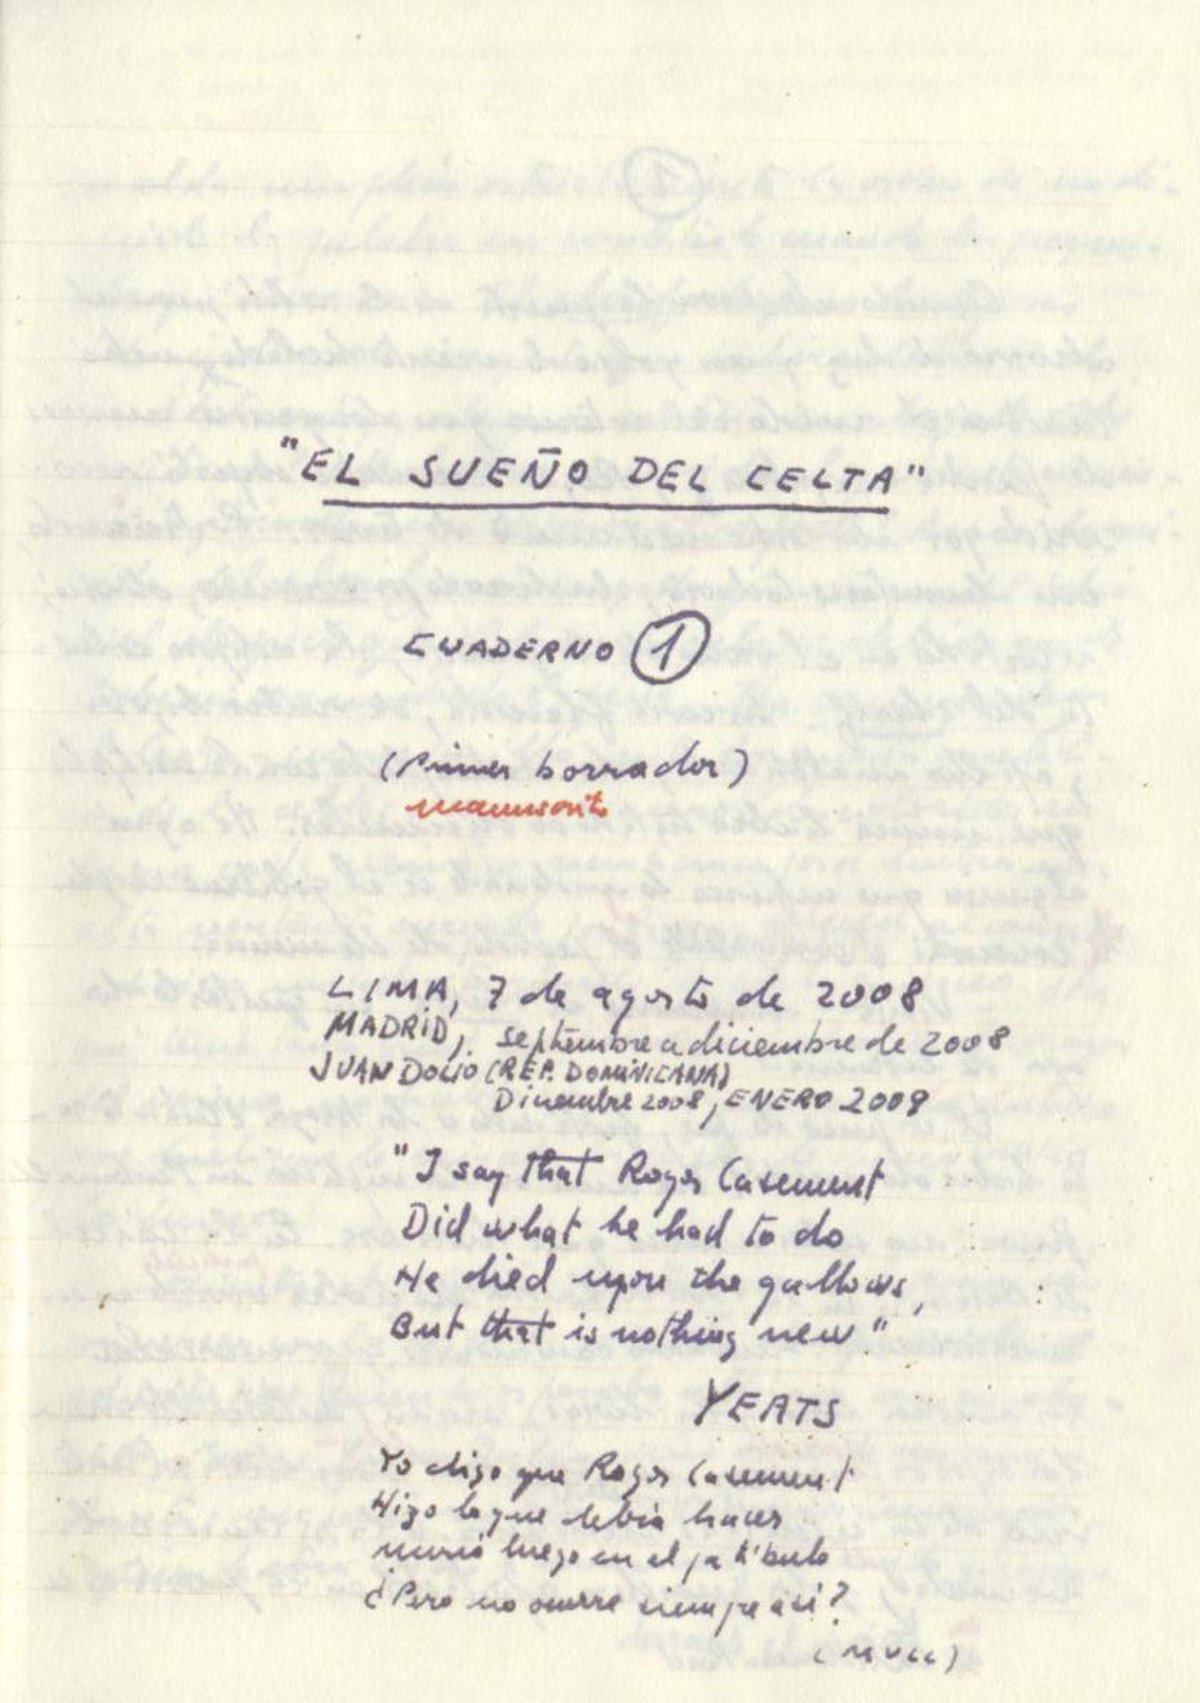 "EL SUEÑO DEL CELTA"
CUADERNO 1
(Primer borrador)
manuscrito
LIMA, 7 de agosto de 2008
MADRID, septiembre a diciembre de 2008
JUAN DOLIO (REP. DOMINICANA)
Diciembre 2008, ENERO 2009
"I say that Roger Casement
Did what he had to do
He died upon the gallows,
But that is nothing new"
YEATS
Yo digo que Roger Casement
Hizo lo que debía hacer
murió luego en el patíbulo
¿Pero no ocurre siempre así?
(MVLL)